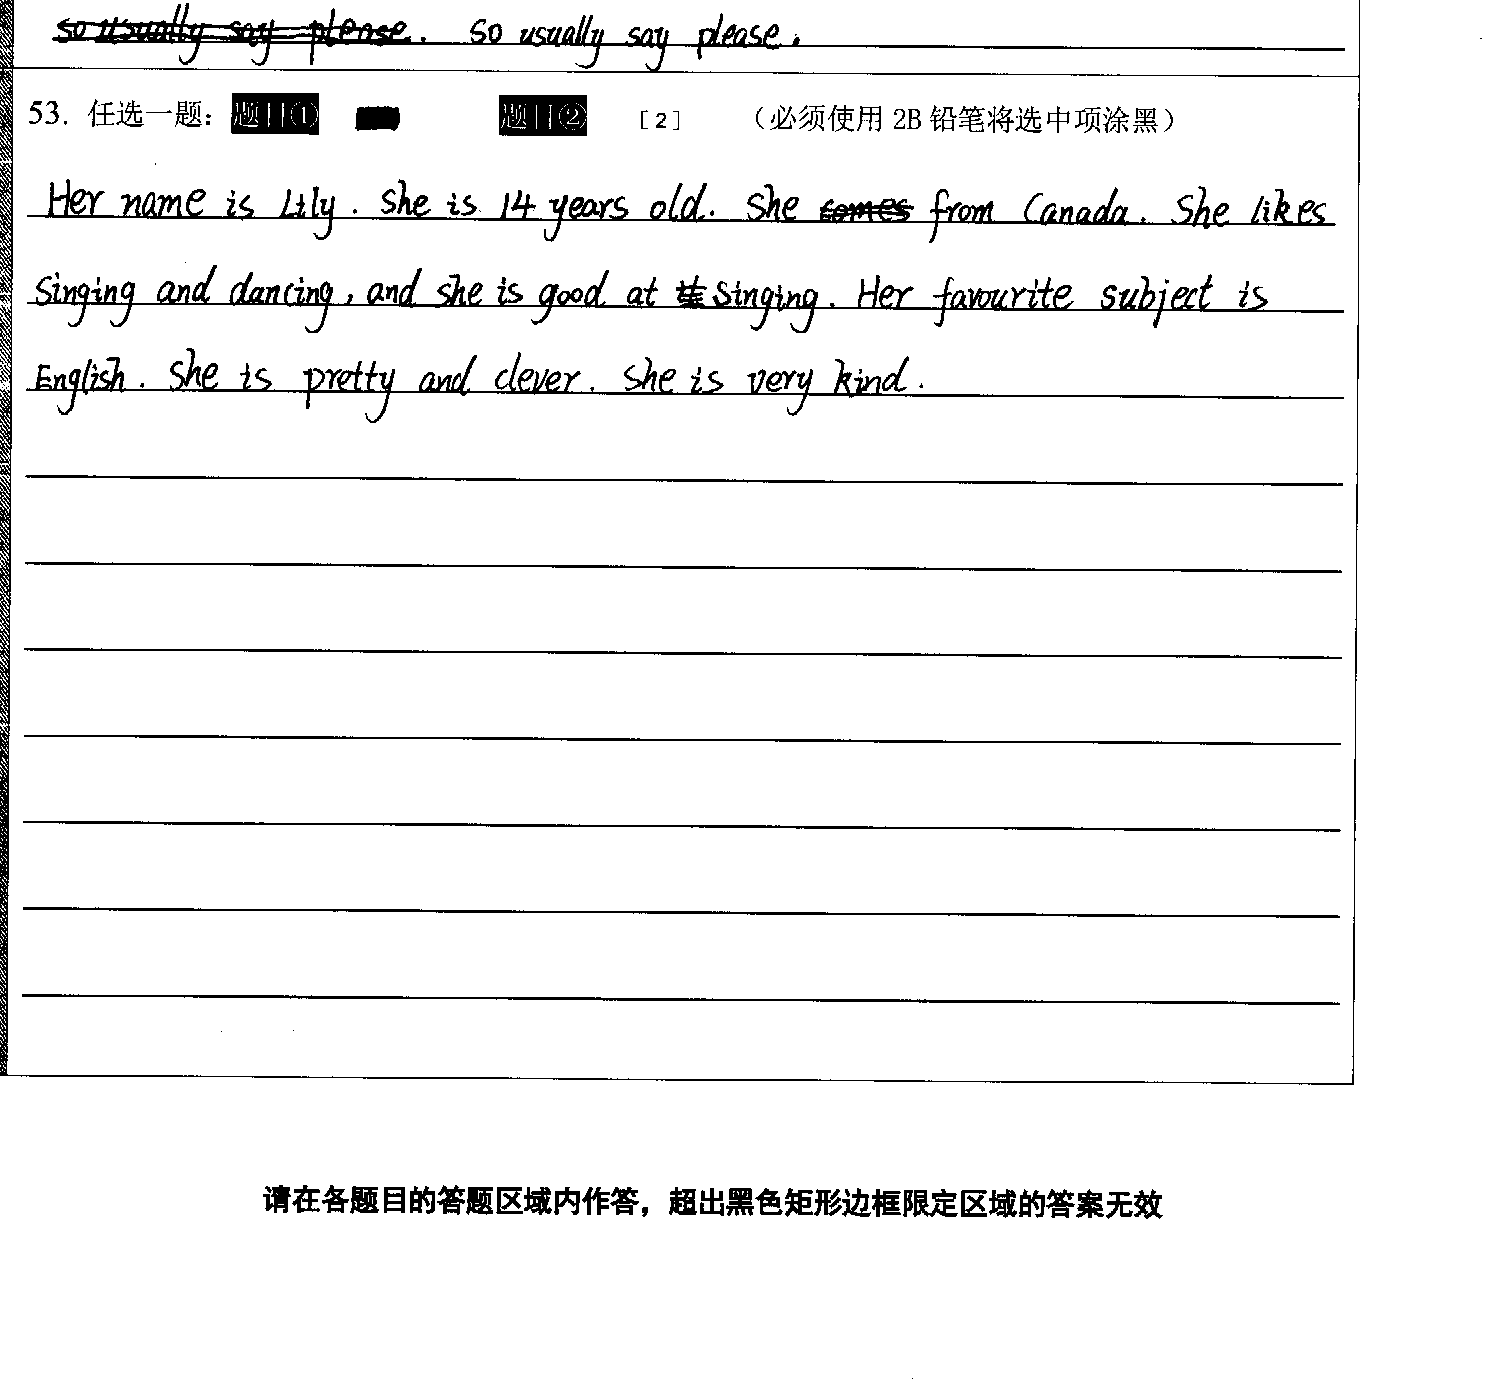 so usually say please. so usually say please.
53. 任选一题: 题目① 题目② [2] (必须使用 2B 铅笔将选中项涂黑)
Her name is Lily. She is 14 years old. She comes from Canada. She likes
singing and dancing, and she is good at singing. Her favourite subject is
English. She is pretty and clever. She is very kind.
请在各题目的答题区域内作答，超出黑色矩形边框限定区域的答案无效